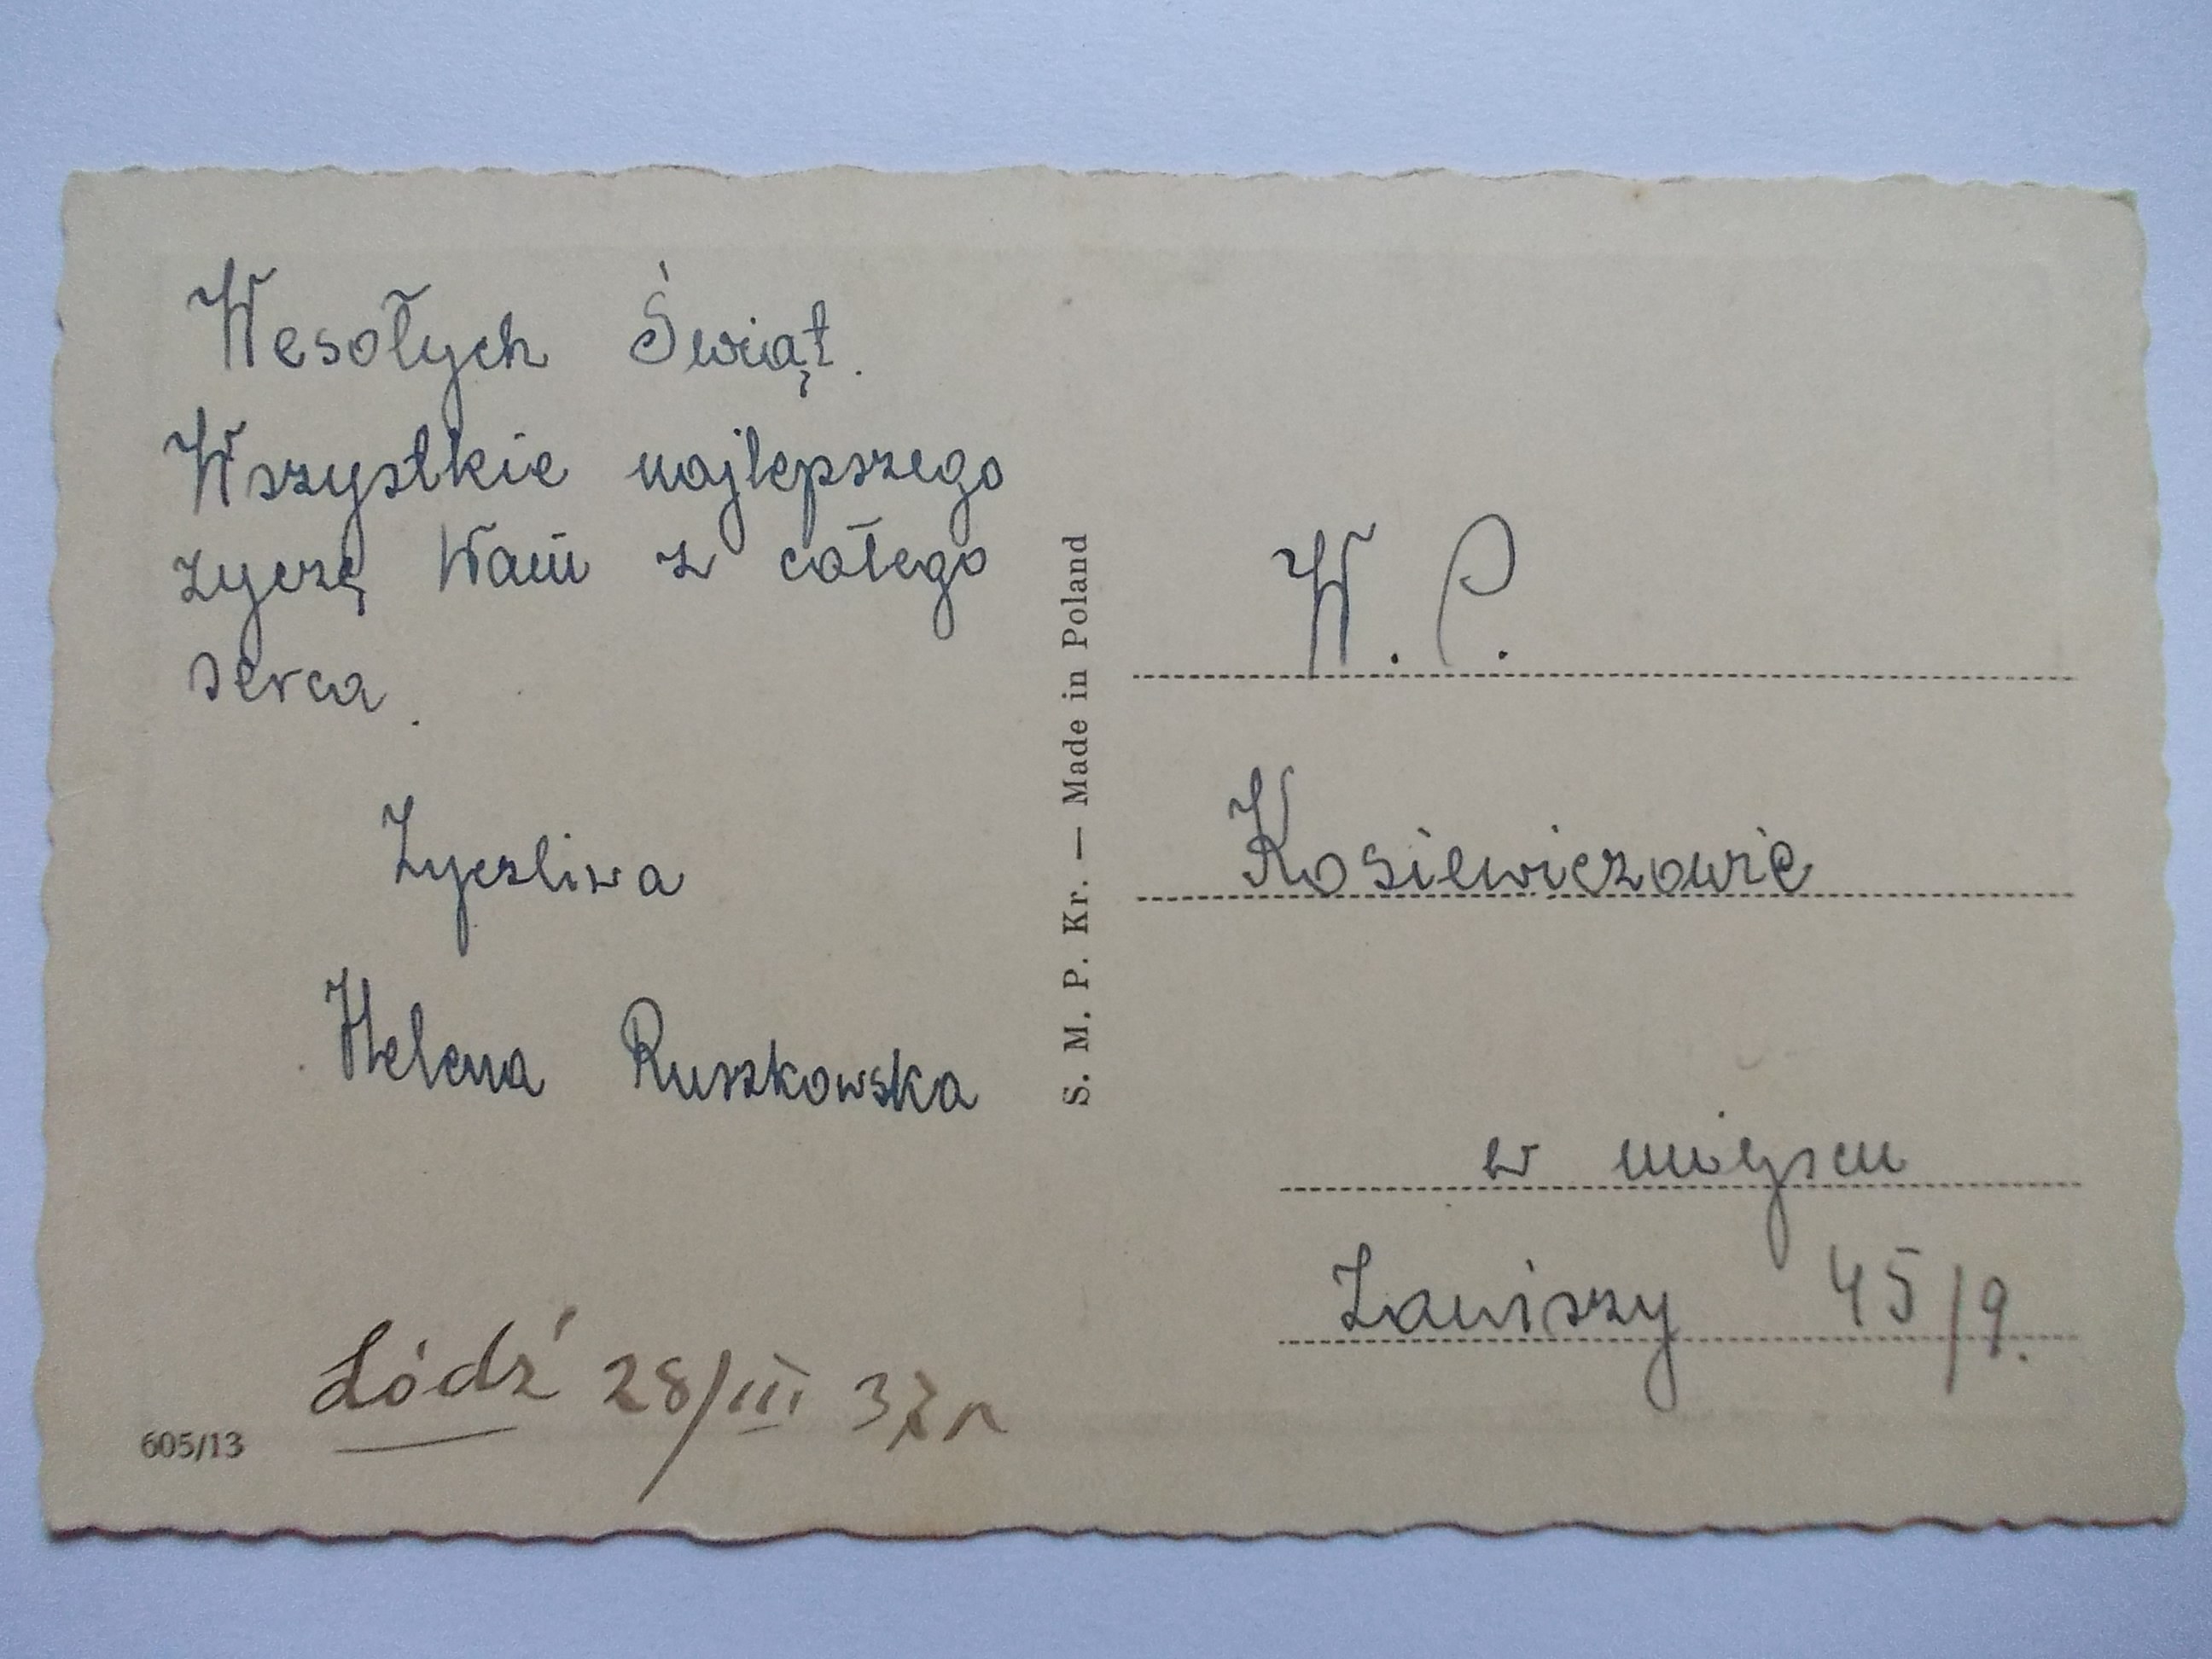 Wesołych Świąt.
Wszystkie najlepszego
życzę Wam z całego
serca.
Życzliwa
Helena Ruszkowska
Łódź 28/III 37 r
605/13
S. M. P. Kr. — Made in Poland
W. P.
Kosiewiczowie
w miejscu
Zawiszy 45/9.